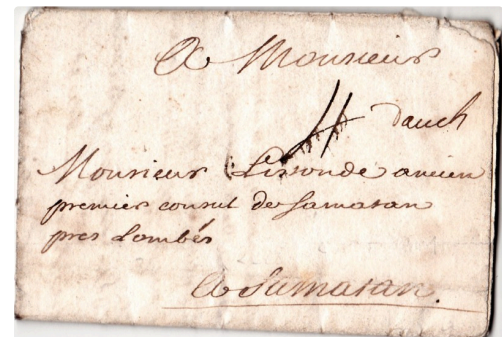 A Monsieur
dauch
Monsieur Lisonde ancien
premier consul de Samatan
pres Lombés
A Samatan.